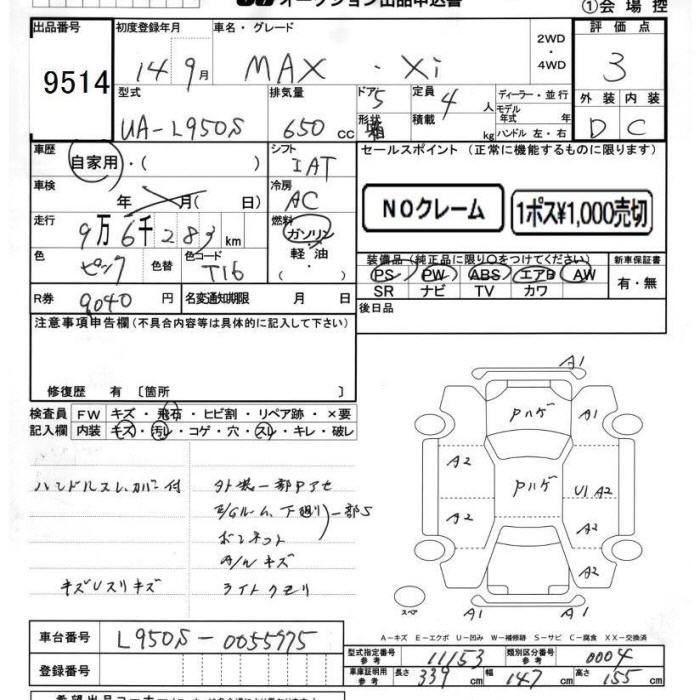 オークション出品申込書
①会場控
出品番号 初度登録年月 車名・グレード 2WD ・ 4WD 評価点
9514 14 9月 MAX ・ Xi 3
型式 排気量 ドア 5 定員 4 人 ディーラー・並行 外装 内装
UA-L950S 650 cc 形状 箱 積載 kg モデル年式 年 D C
ハンドル 左・右
車歴 自家用・( ) シフト IAT セールスポイント (正常に機能するものに限ります)
車検 年 月( 日) 冷房 AC NOクレーム 1ポス¥1,000売切
走行 9万6千283km 燃料 ガソリン・軽油・( )
色 ピンク 色替 色コード T16 装備品(純正品に限り〇をつけてください) 新車保証書
PS PW ABS エアB AW 有・無
SR ナビ TV カワ
R券 9040円 名変通知期限 月 日 後日品
注意事項申告欄(不具合内容等は具体的に記入して下さい)
修復歴 有 〔箇所 〕
検査員記入欄 FW キズ・飛石・ヒビ割・リペア跡・×要
内装 キズ・汚レ・コゲ・穴・スレ・キレ・破レ
ハンドルスレ、カバー付 外装一部Pアセ
E/Gルーム、下廻り 一部S
ボンネット
A/Wキズ
キズUスリキズ ライトクモリ
A1
Pハゲ A1
A2 Pハゲ U1 A2
A2 A2
A2
スペア A1 A1
A-キズ E-エクボ U-凹み W-補修跡 S-サビ C-腐食 XX-交換済
車台番号 L950S-0055975
型式指定番号 参考 11153 類別区分番号 参考 0004
登録番号 車庫証明用 参考 長さ 339 cm 幅 147 cm 高さ 155 cm
希望出品コーナー